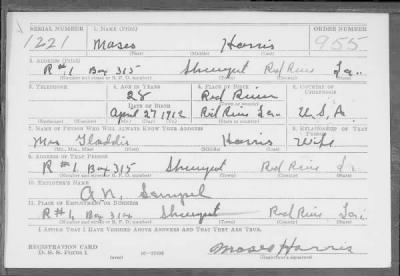 SERIAL NUMBER 1. NAME (Print) ORDER NUMBER
1221 Moses Harris 955
(First) (Middle) (Last)
2. ADDRESS (Print)
R#1 Box 315 Red River La.
(Number and street or R. F. D. number) (Town) (County) (State)
3. TELEPHONE 4. AGE IN YEARS 5. PLACE OF BIRTH 6. COUNTRY OF CITIZENSHIP
28 Red River
DATE OF BIRTH
April 27 1912 Red River La. U.S.A.
7. NAME OF PERSON WHO WILL ALWAYS KNOW YOUR ADDRESS 8. RELATIONSHIP OF THAT PERSON
Mrs Harris Wife
(Mr., Mrs., Miss) (First) (Middle) (Last)
9. ADDRESS OF THAT PERSON
R#1 Box 315 Red River La
(Number and street or R. F. D. number) (Town) (County) (State)
10. EMPLOYER'S NAME
11. PLACE OF EMPLOYMENT OR BUSINESS
R#1 Box 314 Red River La.
(Number and street or R. F. D. number) (Town) (County) (State)
I AFFIRM THAT I HAVE VERIFIED ABOVE ANSWERS AND THAT THEY ARE TRUE.
REGISTRATION CARD
D. S. S. Form 1 Moses Harris
(Registrant's signature)